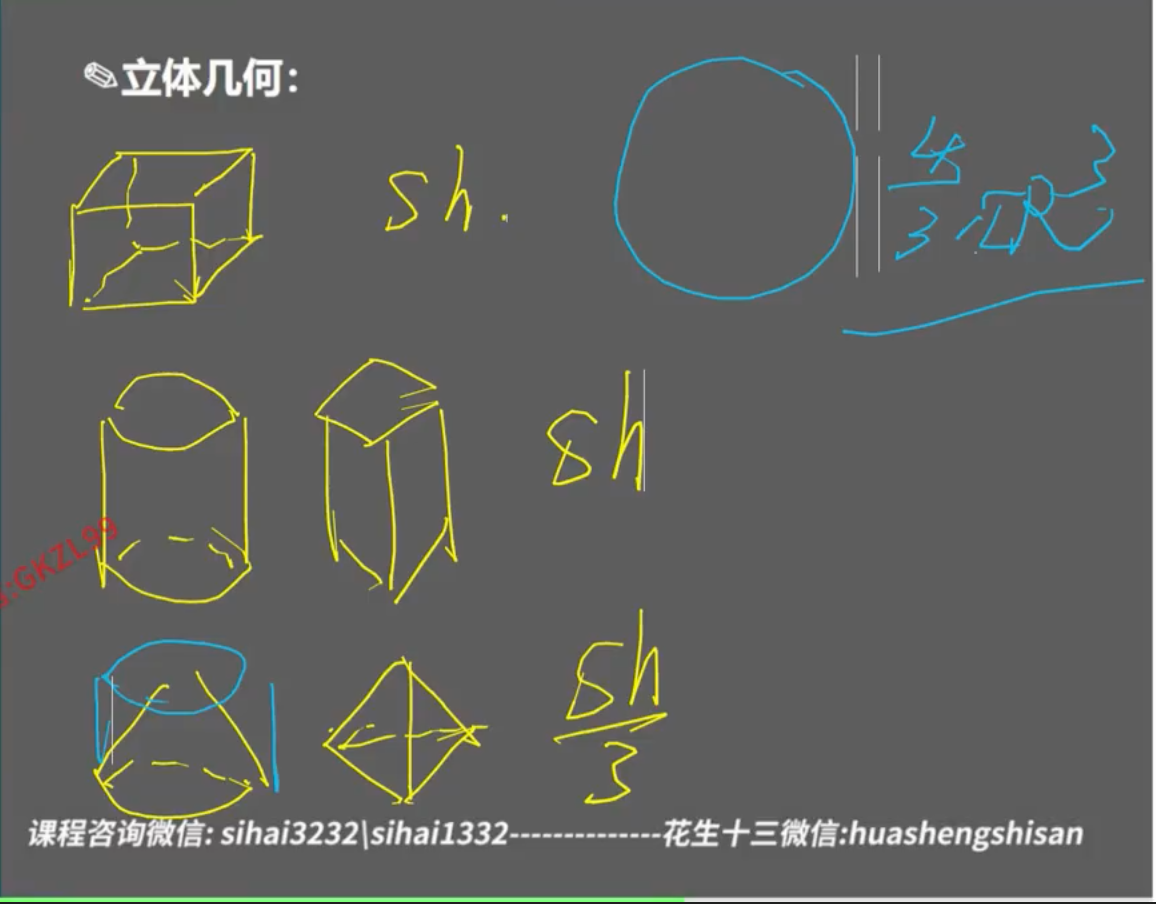 立体几何:
sh.
4/3 πR³
sh
sh/3
:GKZL99
课程咨询微信: sihai3232\sihai1332--------------花生十三微信:huashengshisan